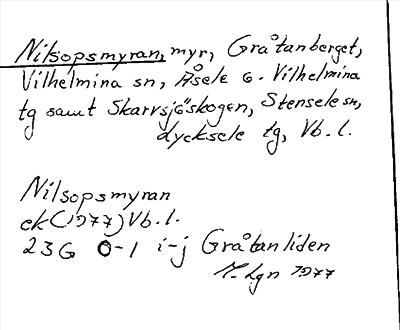 Nilsopsmyran, myr, Gråtanberget,
Vilhelmina sn, Åsele o. Vilhelmina
tg samt Skarvsjöskogen, Stensele sn,
Lycksele tg, Vb. l.
Nilsopsmyran
ek (1977) Vb. l.
23G 0-1 i-j Gråtanliden
1977